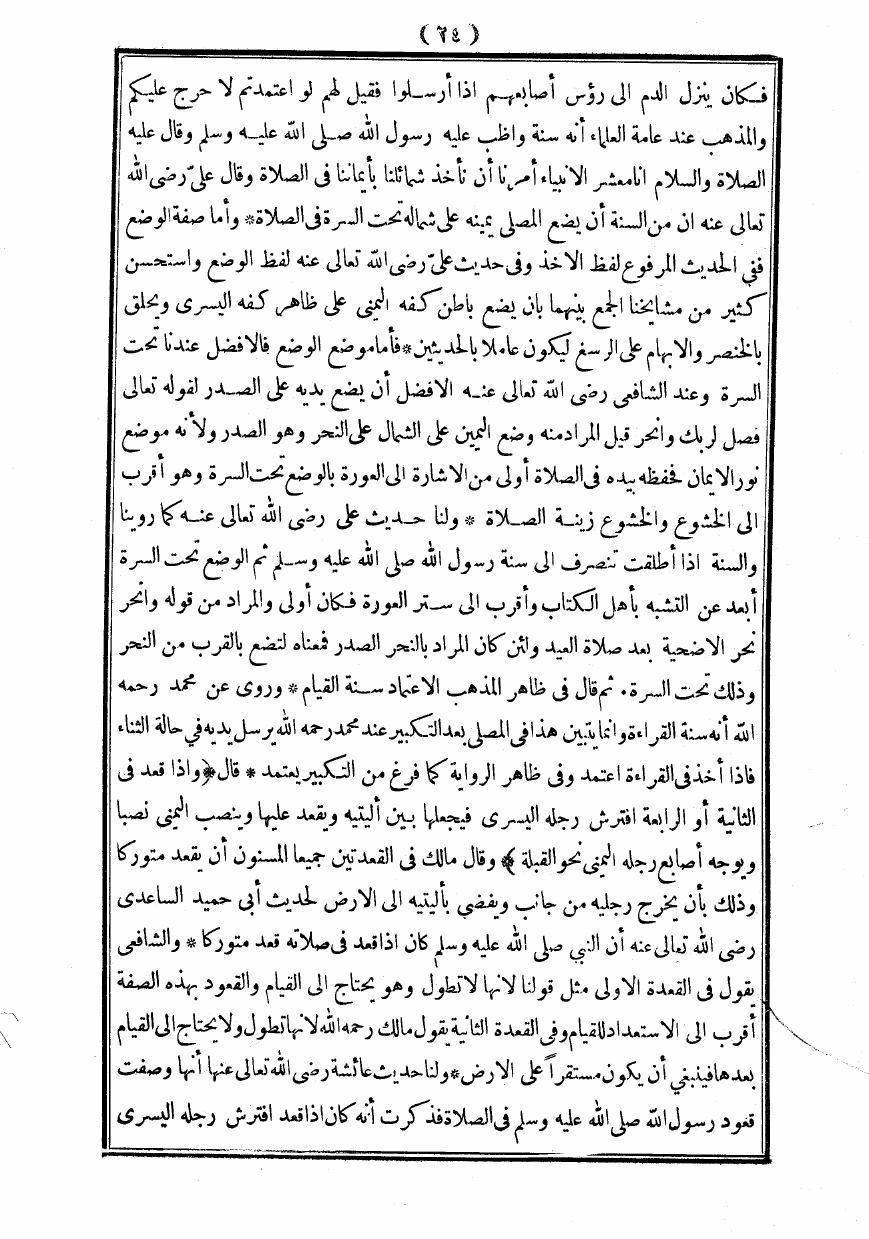 (٢٤)
فكان ينزل الدم الى رؤس أصابعهم اذا أرسلوا فقيل لهم لو اعتمدتم لا حرج عليكم
والمذهب عند عامة العلماء أنه سنة واظب عليه رسول الله صلى الله عليه وسلم وقال عليه
الصلاة والسلام انا معشر الانبياء أمرنا أن نأخذ شمائلنا بأيماننا فى الصلاة وقال علىّ رضى الله
تعالى عنه ان من السنة أن يضع المصلى يمينه على شماله تحت السرة فى الصلاة * وأما صفة الوضع
ففى الحديث المرفوع لفظ الاخذ وفى حديث علىّ رضى الله تعالى عنه لفظ الوضع واستحسن
كثير من مشايخنا الجمع بينهما بان يضع باطن كفه اليمنى على ظاهر كفه اليسرى ويحلق
بالخنصر والابهام على الرسغ ليكون عاملا بالحديثين * فأما موضع الوضع فالافضل عندنا تحت
السرة وعند الشافعى رضى الله تعالى عنه الافضل أن يضع يديه على الصدر لقوله تعالى
فصل لربك وانحر قيل المراد منه وضع اليمين على الشمال على النحر وهو الصدر ولأنه موضع
نور الايمان فحفظه بيده فى الصلاة أولى من الاشارة الى العورة بالوضع تحت السرة وهو أقرب
الى الخشوع والخشوع زينة الصلاة * ولنا حديث على رضى الله تعالى عنه كما روينا
والسنة اذا أطلقت تنصرف الى سنة رسول الله صلى الله عليه وسلم ثم الوضع تحت السرة
أبعد عن التشبه بأهل الكتاب وأقرب الى ستر العورة فكان أولى والمراد من قوله وانحر
نحر الاضحية بعد صلاة العيد ولئن كان المراد بالنحر الصدر فمعناه لتضع بالقرب من النحر
وذلك تحت السرة . ثم قال فى ظاهر المذهب الاعتماد سنة القيام * وروى عن محمد رحمه
الله أنه سنة القراءة وانما يتبين هذا فى المصلى بعد التكبير عند محمد رحمه الله يرسل يديه في حالة الثناء
فاذا أخذ فى القراءة اعتمد وفى ظاهر الرواية كما فرغ من التكبير يعتمد * قال ﴿واذا قعد فى
الثانية أو الرابعة افترش رجله اليسرى فيجعلها بين أليتيه ويقعد عليها وينصب اليمنى نصبا
ويوجه أصابع رجله اليمنى نحو القبلة ﴾ وقال مالك فى القعدتين جميعا المسنون أن يقعد متوركا
وذلك بأن يخرج رجليه من جانب ويفضى بأليتيه الى الارض لحديث أبى حميد الساعدى
رضى الله تعالى عنه أن النبي صلى الله عليه وسلم كان اذا قعد فى صلاته قعد متوركا * والشافعى
يقول فى القعدة الاولى مثل قولنا لانها لا تطول وهو يحتاج الى القيام والقعود بهذه الصفة
أقرب الى الاستعداد للقيام وفى القعدة الثانية يقول مالك رحمه الله لانها تطول ولا يحتاج الى القيام
بعدها فينبغي أن يكون مستقراً على الارض * ولنا حديث عائشة رضى الله تعالى عنها أنها وصفت
قعود رسول الله صلى الله عليه وسلم فى الصلاة فذكرت أنه كان اذا قعد افترش رجله اليسرى